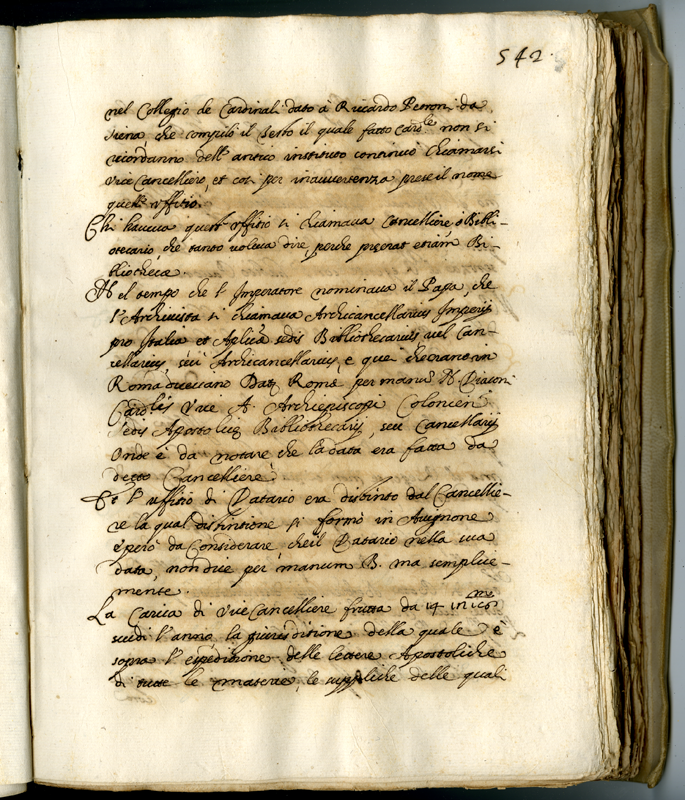 542.
nel Collegio de Cardinali dato à Riccardo Petroni da
Siena, che compilò il Sesto il quale fatto Card.le non si
ricordanno dell'antico instituto continuò chiamarsi
Vice Cancelliero, et cosi per inauuertenza prese il nome
quell'uffitio.
Chi haueua quest'uffitio si chiamaua Cancelliere, ò Bibli-
otecario, che tanto voleua dire, perche etiam Bi-
bliothecæ.
Al tempo che l'Imperatore nominaua il Papa, che
l'Archiuista si chiamaua Archicancellarius Imperij
pro Italia et Aplicæ sedis Bibliothecarius uel Can-
cellarius, seù Archicancellarius, e que che erano in
Roma diceuano Datt. Romæ per manus Diaconi
Vice A. Archiepiscopi Colonien
sedis Apostolicę Bibliothecarij, seu Cancellarij
Onde è da notare che la data era fatta da
detto Cancelliere.
Et l'uffitio di Datario era distinto dal Cancellie-
re la qual distintione si formò in Auignone
è però da Considerare, che il Datario nella sua
data, non dice per manum B. ma semplice-
mente.
La Carica di Vice Cancelliere frutta da 14 in
scudi l'anno la giurisditione della quale è
sopra l'espeditione delle lettere Apostoliche
di tutte le materie, le suppliche delle quali